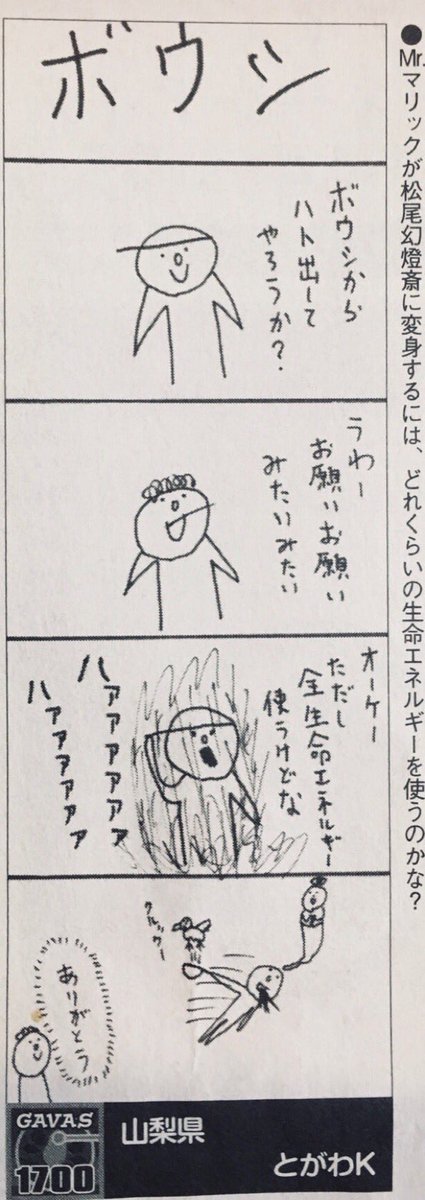 ●Mr.マリックが松尾幻燈斎に変身するには、どれくらいの生命エネルギーを使うのかな?
ボウシ
ボウシから
ハト出して
やろうか?
うわー
お願いお願い
みたいみたい
オーケー
ただし
全生命エネルギー
使うけどな
ハァァァァァァァ
ハァァァァァァ
クルックー
ありがとう
GAVAS
1700
山梨県
とがわK